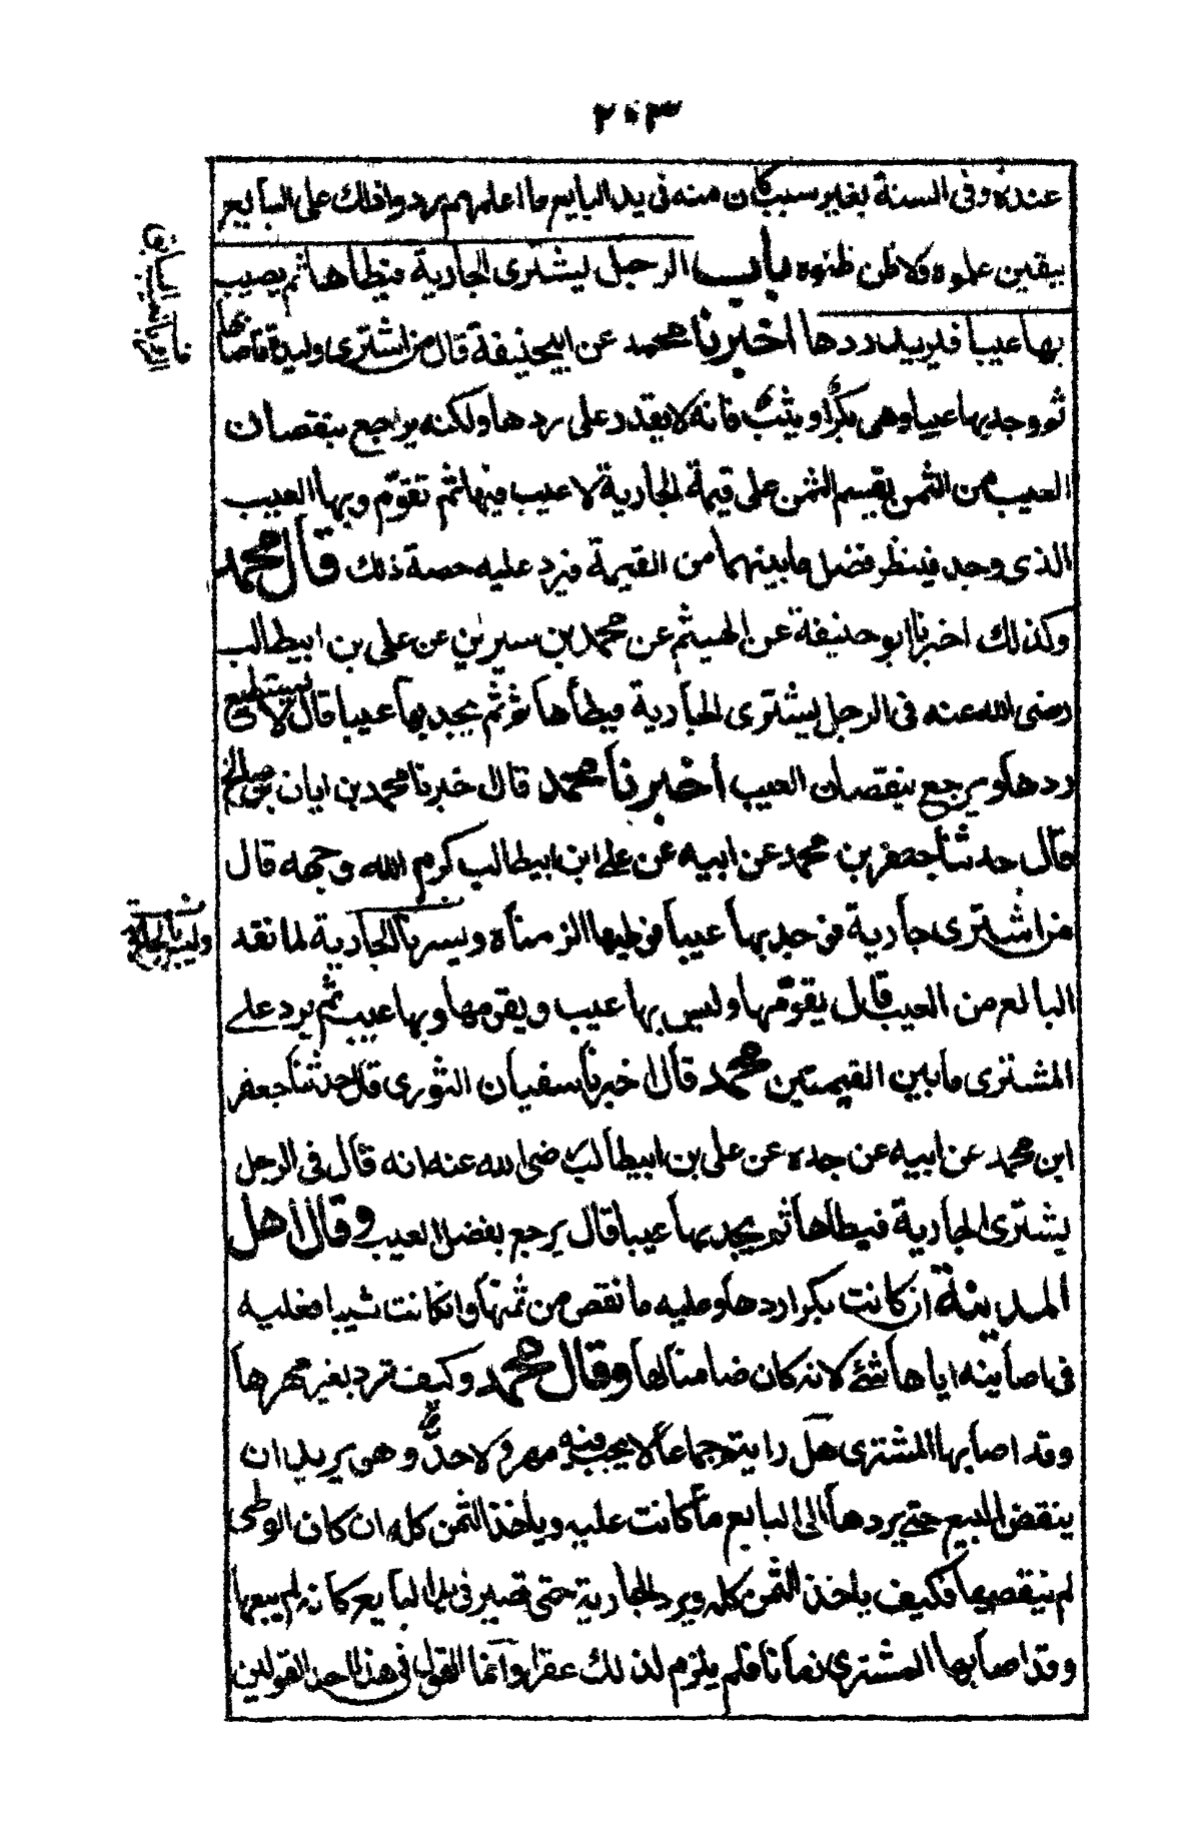 ٢٠٣
عنده وفى السنة بغير سبب كان منه فى يد البايع ما اعلمهم يردوا ذلك على البايع
بيقين علموه ولا ظن ظنوه باب الرجل يشترى الجارية فيطأها ثم يصيب
بها عيبا فيريد ردها اخبرنا محمد عن ابيحنيفة قال من اشترى وليدة فاصابها
ثم وجد بها عيبا وهى بكرا و ثيب فانه لا يقدر على ردها ولكنه يراجع بنقصان
العيب من الثمن يقسم الثمن على قيمة الجارية لا عيب فيها ثم تقوم وبها العيب
الذى وجد فينظر فضل ما بينهما من القيمة فيرد عليه حصة ذلك قال محمد
وكذلك اخبرنا ابو حنيفة عن الهيثم عن محمد بن سيرين عن على بن ابيطالب
رضى الله عنه فى الرجل يشترى الجارية فيطأها ثم يجد بها عيبا قال لا يستطيع
ردها ويرجع بنقصان العيب أخبرنا محمد قال اخبرنا محمد بن ابان بن صالح
قال حدثنا جعفر بن محمد عن ابيه عن على ابن ابيطالب كرم الله وجهه قال
من اشترى جارية فوجد بها عيبا فوطيها الزمناه وليس بالجارية لما نقد
البايع من العيب قال يقومها وليس بها عيب ويقومها وبها عيب ثم يرد على
المشترى ما بين القيمتين محمد قال اخبرنا سفيان الثورى قال حدثنا جعفر
ابن محمد عن ابيه عن جده عن على بن ابيطالب رضى الله عنه انه قال فى الرجل
يشترى الجارية فيطأها ثم يجد بها عيبا قال يرجع بفضل العيب وقال اهل
المدينة ان كانت بكرا ردها وعليه ما نقص من ثمنها وان كانت ثيبا فعليه
فى اصابته اياها شئ لانه كان ضامنا لها وقال محمد وكيف ترد بغير مهرها
وقد اصابها المشترى هل رايتم جماعا لا يجب فيه مهر ولا حد وهى يريد ان
ينقض البيع حتى يردها الى البايع ما كانت عليه وياخذ الثمن كله ان كان الوطى
لم ينقصها فكيف ياخذ الثمن كله ويرد الجارية حتى تصير فى يد البايع كانه لم يبعها
وقد اصابها المشترى زمانا فلم يلزم لذلك عقرا وانما القول فى هذا احد القولين